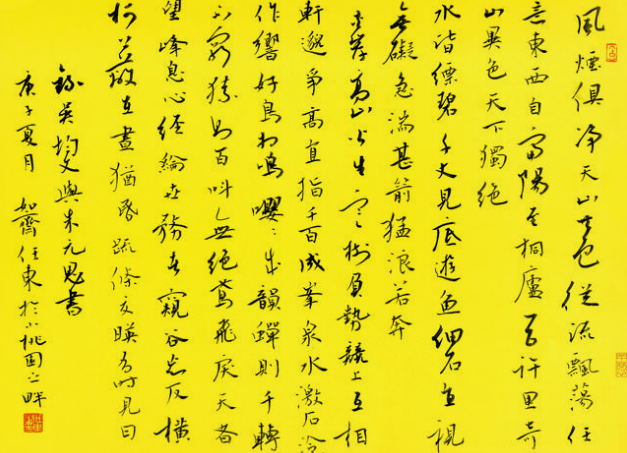 風煙俱淨天山共色從流飄蕩任
意東西自富陽至桐廬百許里奇
山異色天下獨絕
水皆縹碧千丈見底遊魚細石直視
無礙急湍甚箭猛浪若奔
夾岸高山皆生寒樹負勢競上互相
軒邈爭高直指千百成峯泉水激石泠
作響好鳥相鳴嚶〻成韻蟬則千轉
不窮猿則百叫無絕鳶飛戾天者
望峰息心經綸世務者窺谷忘反橫
柯上蔽在晝猶昏疏條交映有時見日
錄吳均文與朱元思書
庚子夏月 如齋任東於小桃園之畔